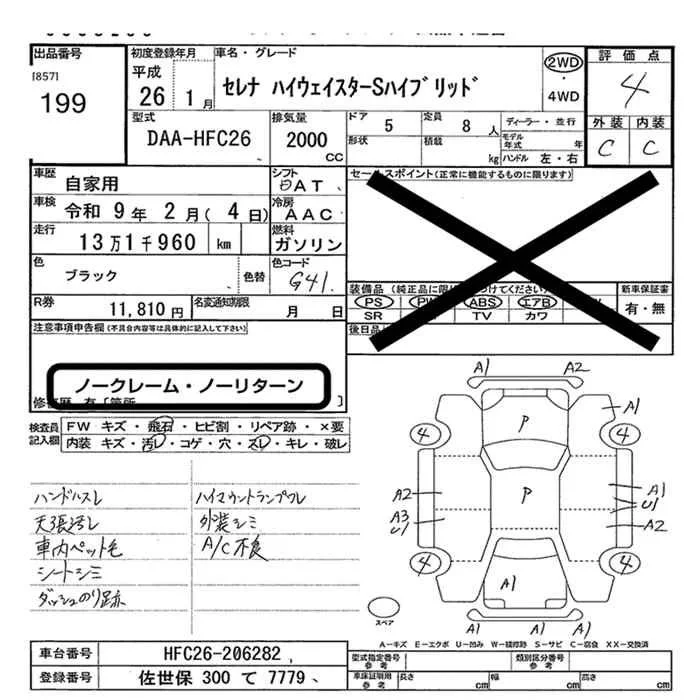 出品番号
[857]
199
初度登録年月
平成
26 1月
車名・グレード
セレナ ハイウェイスターSハイブリッド
2WD
・
4WD
評価点
4
外装 内装
C C
型式
DAA-HFC26
排気量
2000
CC
ドア
5
定員
8人
ディーラー・並行
形状
積載
kg
モデル年式 年
ハンドル 左・右
車歴
自家用
シフト
AT
車検
令和 9年 2月(4日)
冷房
AAC
走行
13万1千960 km
燃料
ガソリン
色
ブラック
色替
色コード
G41
R券
11,810円
名変通知期限
月 日
セールスポイント(正常に機能するものに限ります)
装備品
PS ABS エアB
SR TV カワ
後日品
新車保証書
有・無
注意事項申告欄(不具合内容等は具体的に記入して下さい)
ノークレーム・ノーリターン
検査員記入欄
FW キズ・飛石・ヒビ割・リペア跡・×要
内装 キズ・汚レ・コゲ・穴・スレ・キレ・破レ
ハンドルスレ
天張汚レ
車内ペット毛
シートシミ
ダッシュのり跡
ハイマウントランプワレ
外装シミ
A/C不良
A1 A2
A1
P
4 4
P
A2
A3
U1
A1
U1
A2
4 4
A1
スペア
A1 A1
A-キズ E-エクボ U-凹み W-補修跡 S-サビ C-腐食 XX-交換済
車台番号
HFC26-206282
登録番号
佐世保 300 て 7779
型式指定番号
参考
類別区分番号
参考
車床証明用
参考
長さ cm
幅 cm
高さ cm